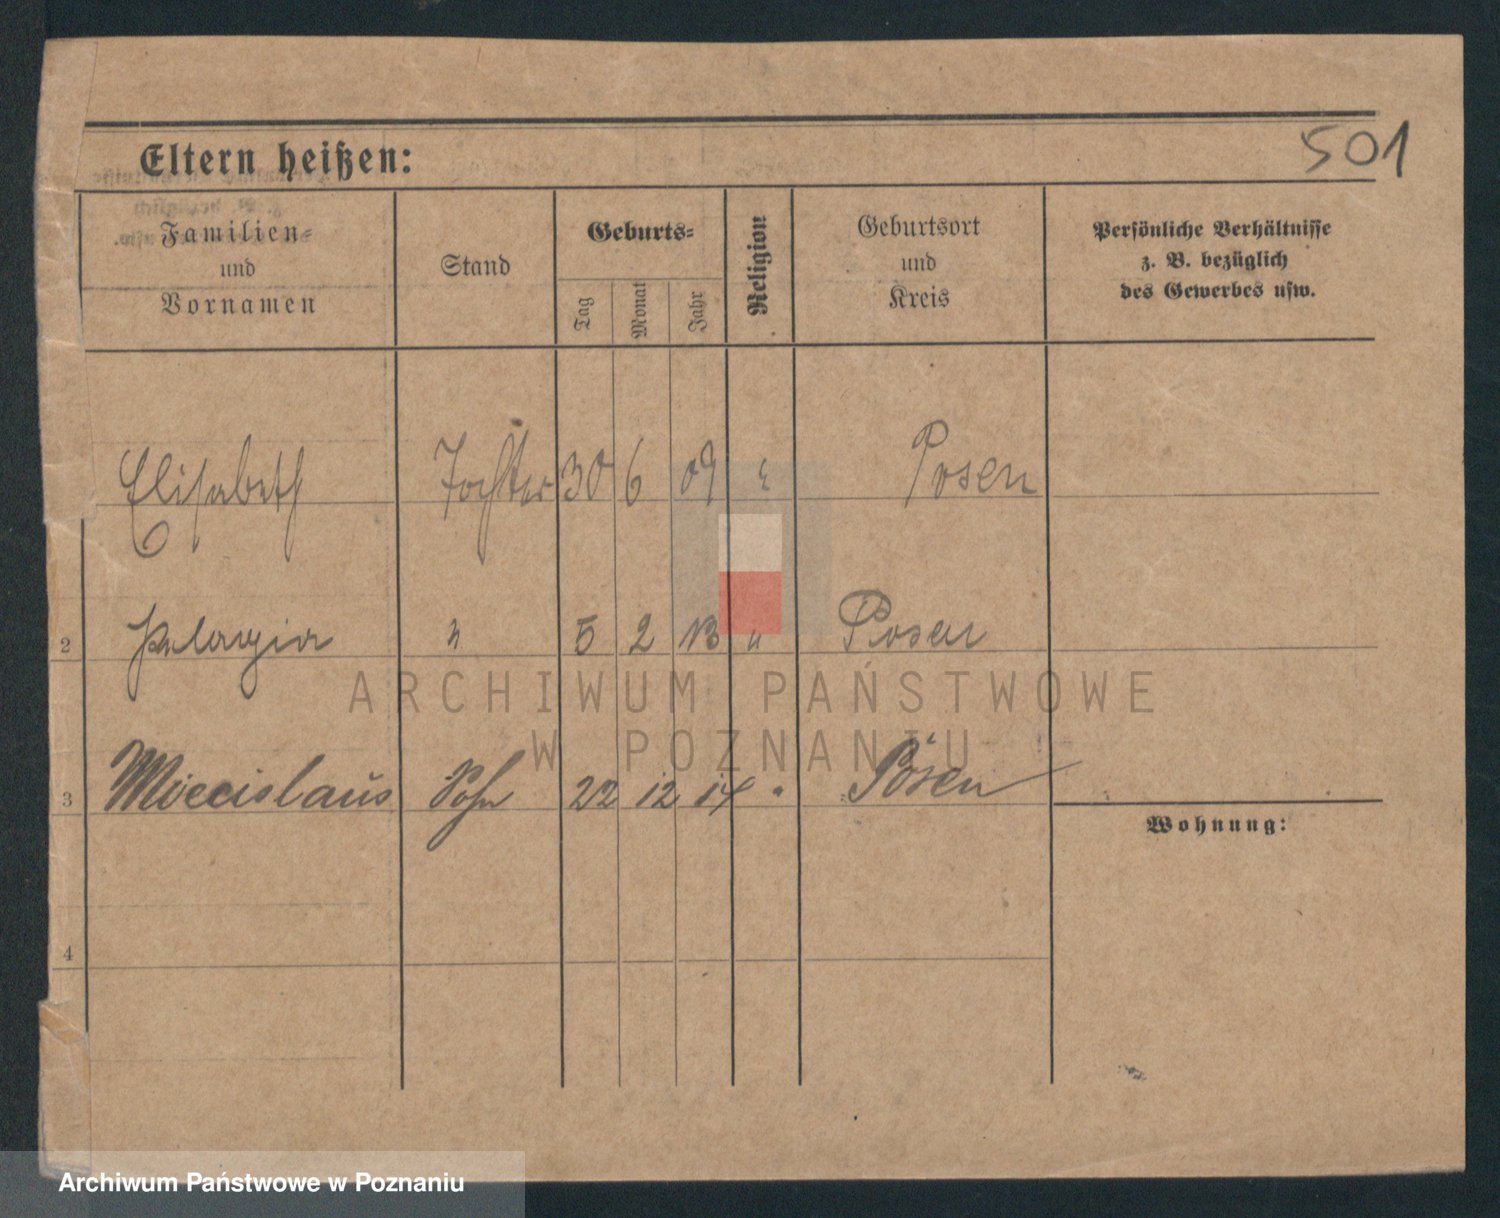 501
Eltern heißen:
Familien-
und
Vornamen
Stand
Geburts-
Tag
Monat
Jahr
Religion
Geburtsort
und
Kreis
Persönliche Verhältnisse
z. B. bezüglich
des Gewerbes usw.
Elisabeth Tochter 30 6 09 " Posen
2 Pelagia " 5 2 13 " Posen
3 Miecislaus Sohn 22 12 14 " Posen
Wohnung:
4
ARCHIWUM PAŃSTWOWE
W POZNANIU
Archiwum Państwowe w Poznaniu